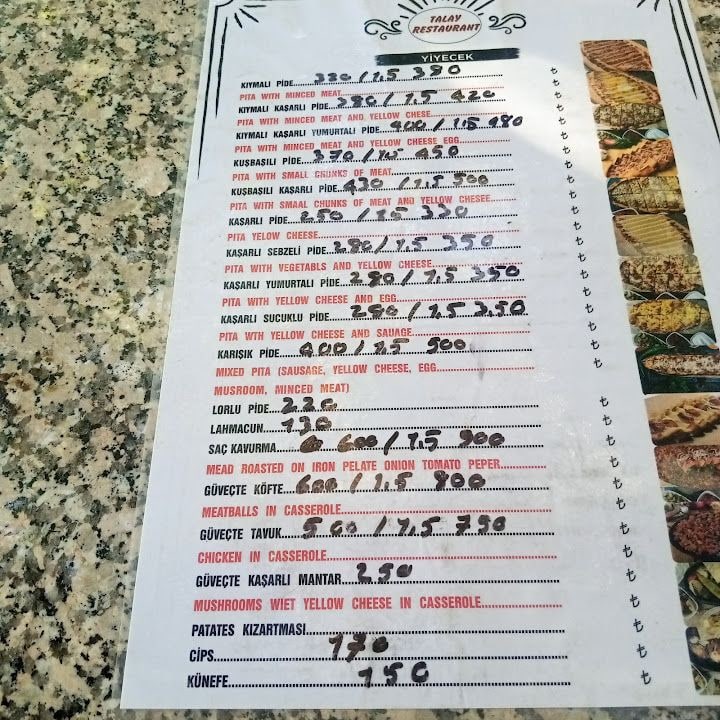 TALAY
RESTAURANT
YİYECEK
KIYMALI PİDE 330 / 1.5 390 ₺
PITA WITH MINCED MEAT
KIYMALI KAŞARLI PİDE 380 / 1.5 420 ₺
PITA WITH MINCED MEAT AND YELLOW CHESE
KIYMALI KAŞARLI YUMURTALI PİDE 400 / 1.5 480 ₺
PITA WITH MINCED MEAT AND YELLOW CHEESE EGG
KUŞBAŞILI PİDE 370 / 1.5 450 ₺
PITA WITH SMALL CHUNKS OF MEAT
KUŞBAŞILI KAŞARLI PİDE 430 / 1.5 500 ₺
PITA WITH SMAAL CHUNKS OF MEAT AND YELLOW CHESEE
KAŞARLI PİDE 250 / 1.5 330 ₺
PITA YELOW CHEESE
KAŞARLI SEBZELİ PİDE 280 / 1.5 350 ₺
PITA WITH VEGETABLS AND YELLOW CHEESE
KAŞARLI YUMURTALI PİDE 280 / 1.5 350 ₺
PITA WITH YELLOW CHEESE AND EGG
KAŞARLI SUCUKLU PİDE 280 / 1.5 350 ₺
PITA WTH YELLOW CHEESE AND SAUAGE
KARIŞIK PİDE 400 / 1.5 500 ₺
MIXED PITA (SAUSAGE, YELLOW CHEESE, EGG
MUSROOM, MINCED MEAT)
LORLU PİDE 220 ₺
LAHMACUN 130 ₺
SAÇ KAVURMA 600 / 1.5 900 ₺
MEAD ROASTED ON IRON PELATE ONION TOMATO PEPER
GÜVEÇTE KÖFTE 600 / 1.5 800 ₺
MEATBALLS IN CASSEROLE
GÜVEÇTE TAVUK 500 / 1.5 750 ₺
CHICKEN IN CASSEROLE
GÜVEÇTE KAŞARLI MANTAR 250 ₺
MUSHROOMS WIET YELLOW CHEESE IN CASSEROLE
PATATES KIZARTMASI ₺
CİPS 170 ₺
KÜNEFE 150 ₺